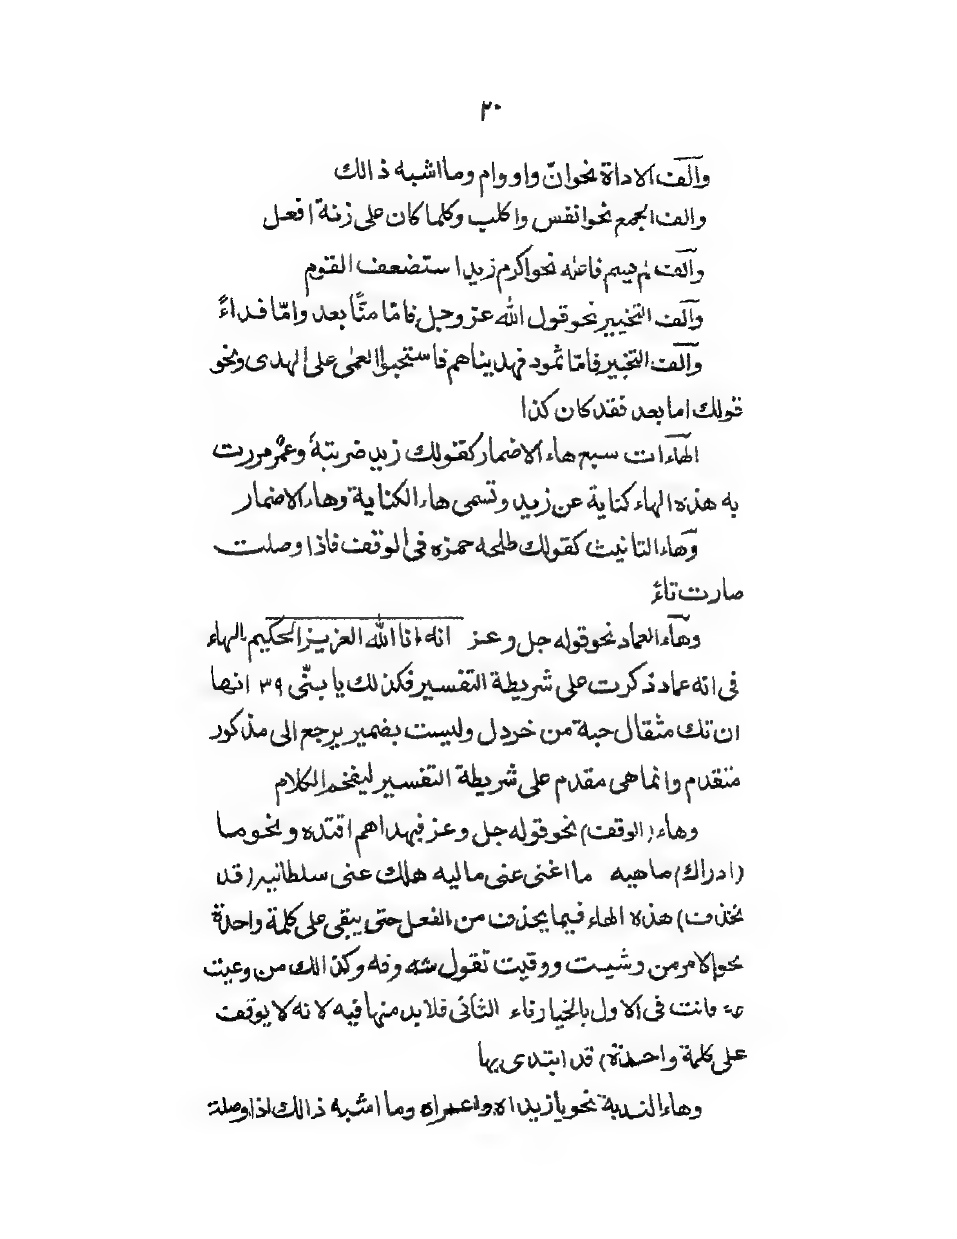 ٢٠
والف الاداة نحو انّ واو وام وما اشبه ذالك
والف الجمع نحو انفس واكلب وكلما كان على زنة افعل
والف لم يسم فاعله نحو اكرم زيد استضعف القوم
والف التخيير نحو قول الله عز وجل فامّا منّاً بعد وامّا فداءً
والف التخبير فامّا ثمود فهديناهم فاستحبوا العمى على الهدى ونحو
قولك اما بعد فقد كان كذا
الهاءات سبع هاء الاضمار كقولك زيد ضربتهُ وعمرٌ مررت
به هذه الهاء كناية عن زيد وتسمى هاء الكناية وهاء الاضمار
وهاء التانيث كقولك طلحه حمزه فى الوقف فاذا وصلت
صارت تاءً
وهاء العماد نحو قوله جل وعز انه انا الله العزيز الحكيم بالهاء
فى انه عماد ذكرت على شريطة التفسير فكذلك يا بنّى ٣٩ انها
ان تك مثقال حبة من خردل وليست بضمير يرجع الى مذكور
متقدم وانما هى مقدم على شريطة التفسير ليفخم الكلام
وهاء (الوقف) نحو قوله جل وعز فبهداهم اقتده ونحو ما
(ادراك) ما هيه ما اغنى عنى ماليه هلك عنى سلطانيه (قد
تحذف) هذه الهاء فيما يحذف من الفعل حتى يبقى على كلمة واحدة
نحو الامر من وشيت ووقيت تقول شه وقه وكذالك من وعيت
عه فانت فى الاول بالخيار فاء الثانى فلابد منها فيه لانه لا يوقف
على كلمة واحدة) قد ابتدى بها
وهاء الندبة نحو يا زيداه واعمراه وما اشبه ذالك اذا وصلته